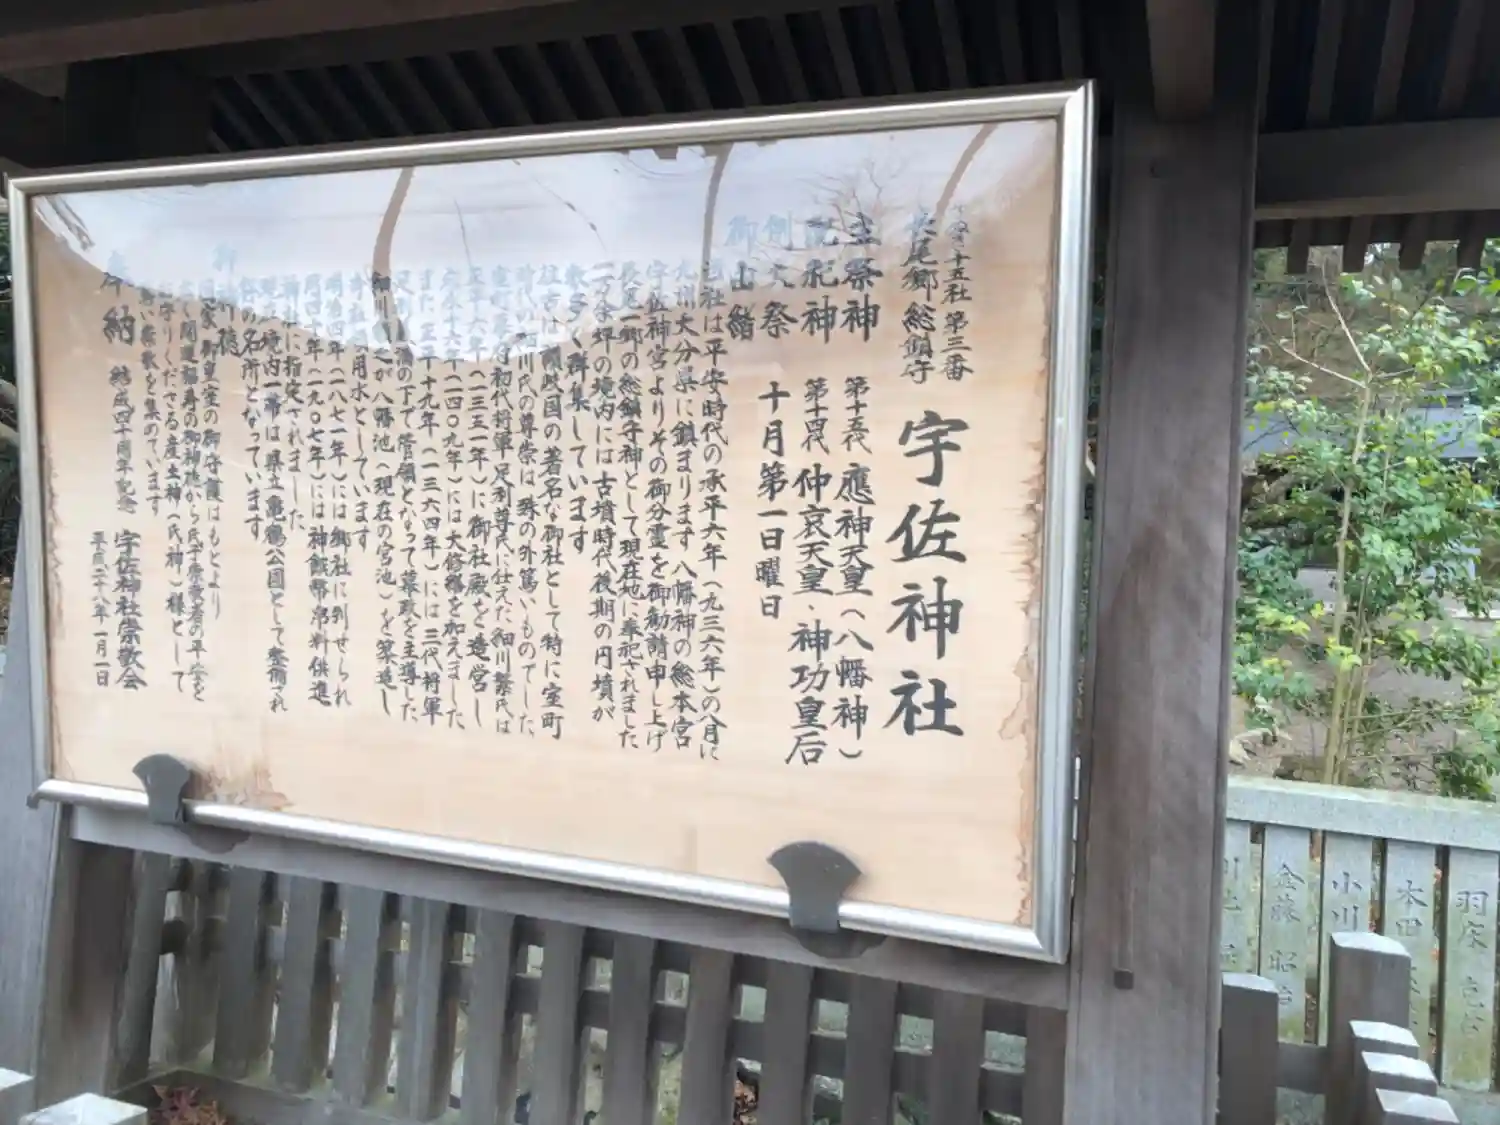 十五社 第三番
長尾郷 総鎮守
宇佐神社
主祭神 第十五代 應神天皇(八幡神)
配祀神 第十四代 仲哀天皇・神功皇后
例大祭 十月第一日曜日
御由緒
当社は平安時代の承平六年(九三六年)の八月に
九州大分県に鎮まります八幡神の総本宮
宇佐神宮よりその御分霊を御勧請申し上げ
長尾一郷の総鎮守神として現在地に奉祀されました
二万余坪の境内には古墳時代後期の円墳が
数多く群集しています
往古は讃岐国の著名な御社として特に室町
時代の細川氏の尊崇は殊の外篤いものでした
室町幕府初代将軍足利尊氏に仕えた細川繁氏は
正平六年(一三五一年)に御社殿を造営し
応永十六年(一四〇九年)には大修復を加えました
また正平十九年(一三六四年)には三代将軍
足利義満の下で管領となって幕政を主導した
細川頼之が八幡池(現在の宮池)を築造し
用水としています
明治四年(一八七一年)には郷社に列せられ
同四十年(一九〇七年)には神饌幣帛料供進
神社に指定されました
現在境内一帯は県立亀鶴公園として整備され
の名所となっています
御神徳
国家・御皇室の御守護はもとより
開運福寿の御神徳から氏子崇敬者の平安を
見守りくださる産土神(氏神)様として
篤い崇敬を集めています
奉納 結成四十周年記念 宇佐神社崇敬会
平成二十八年一月一日
小川
本田
羽床